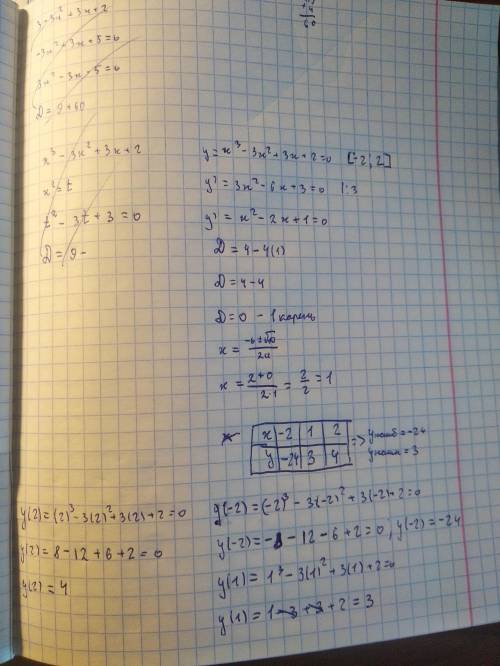 60
3-3x²+3x+2
-3x²+3x+5=0
3x²-3x-5=0
D=9+60
x³-3x²+3x+2
x²=t
t²-3t+3=0
D=9-
y=x³-3x²+3x+2=0 [-2; 2]
y'=3x²-6x+3=0 |:3
y'=x²-2x+1=0
D=4-4(1)
D=4-4
D=0 - 1 корень
x=(-b±√D)/2a
x=(2+0)/(2·1)=2/2=1
x -2 1 2
y -24 3 4
=> yнаиб=-24
yнаим=3
y(2)=(2)³-3(2)²+3(2)+2=0
y(2)=8-12+6+2=0
y(2)=4
y(-2)=(-2)³-3(-2)²+3(-2)+2=0
y(-2)=-8-12-6+2=0, y(-2)=-24
y(1)=1³-3(1)²+3(1)+2=0
y(1)=1-3+3+2=3